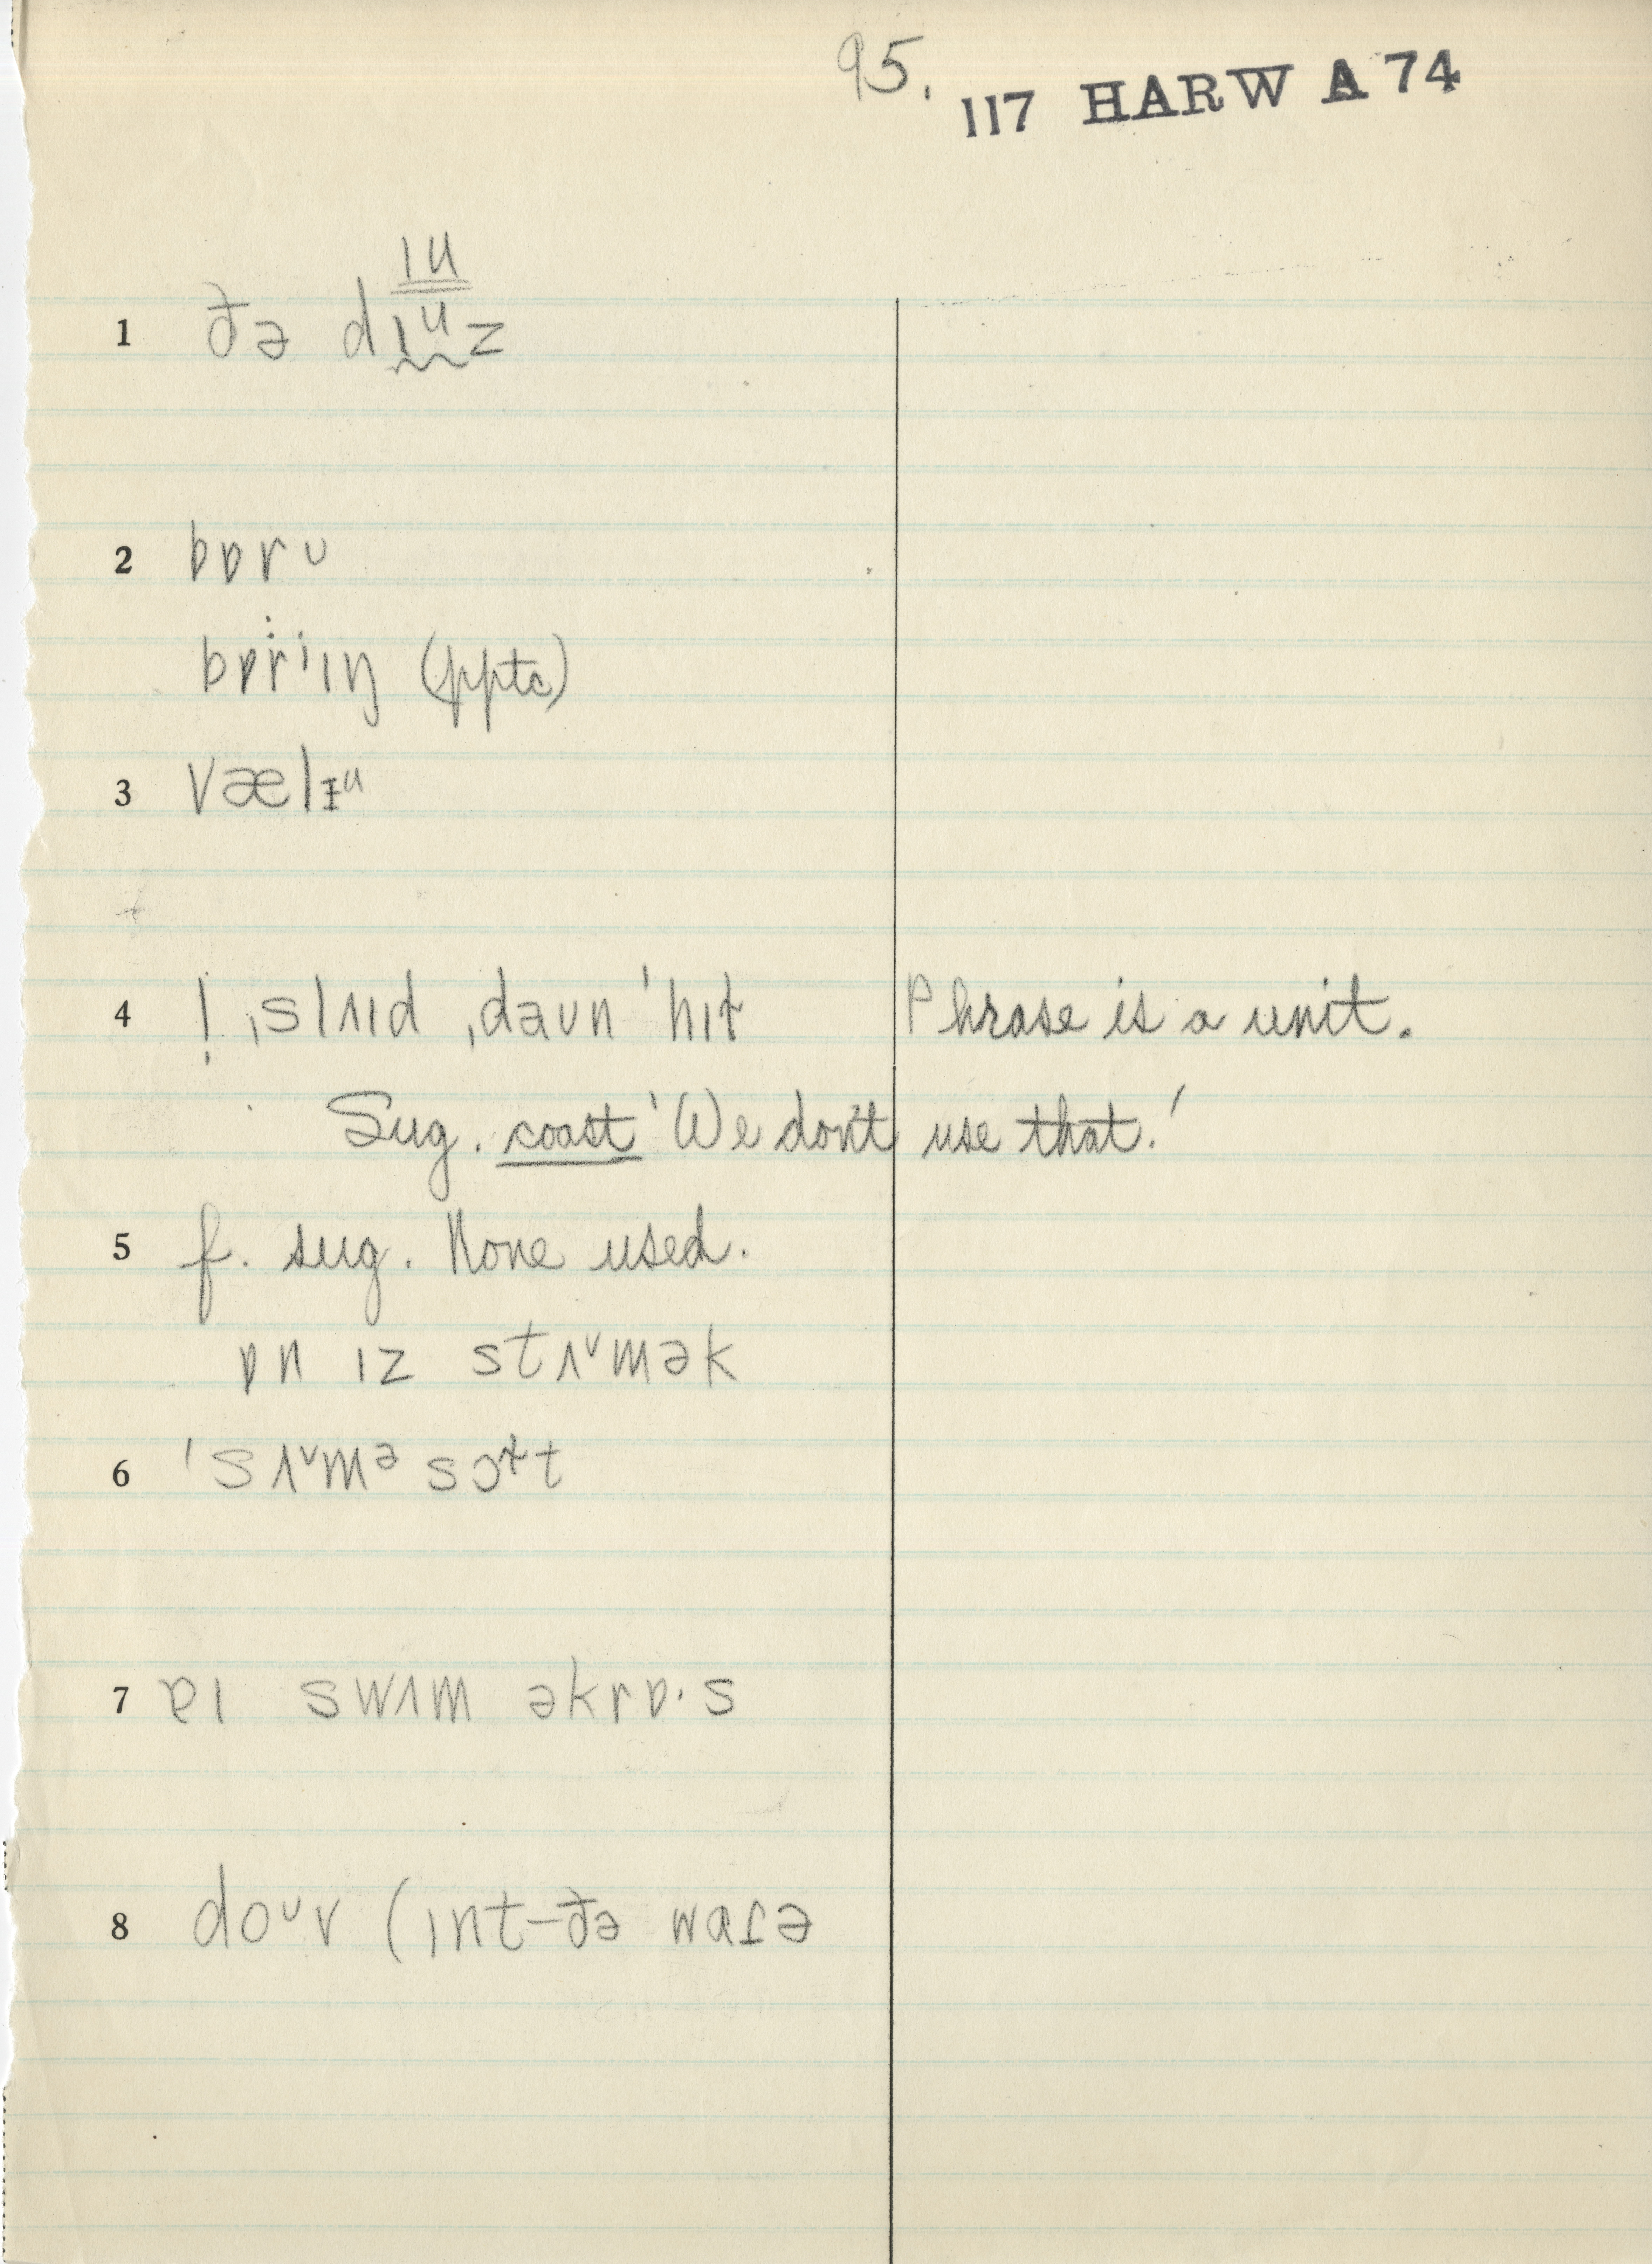 95.
117 HARW A 74
ɪu
1 ðə dɪᵘz
2 bɒrʊ
bɒrˈɪŋ (pptc)
3 vælᵻᵘ
4 ! ˌslʌɪd ˌdaʊn ˈhɪt Phrase is a unit.
Sug. coast 'We don't use that.'
5 f. sug. None used.
ɒn ɪz stʌᵛmək
6 ˈsʌᵛmᵊ sɔᵊ̵t
7 ɐɪ swɪm əkrɒ·s
8 doᵘv (ɪnt–ðə wɑɾə